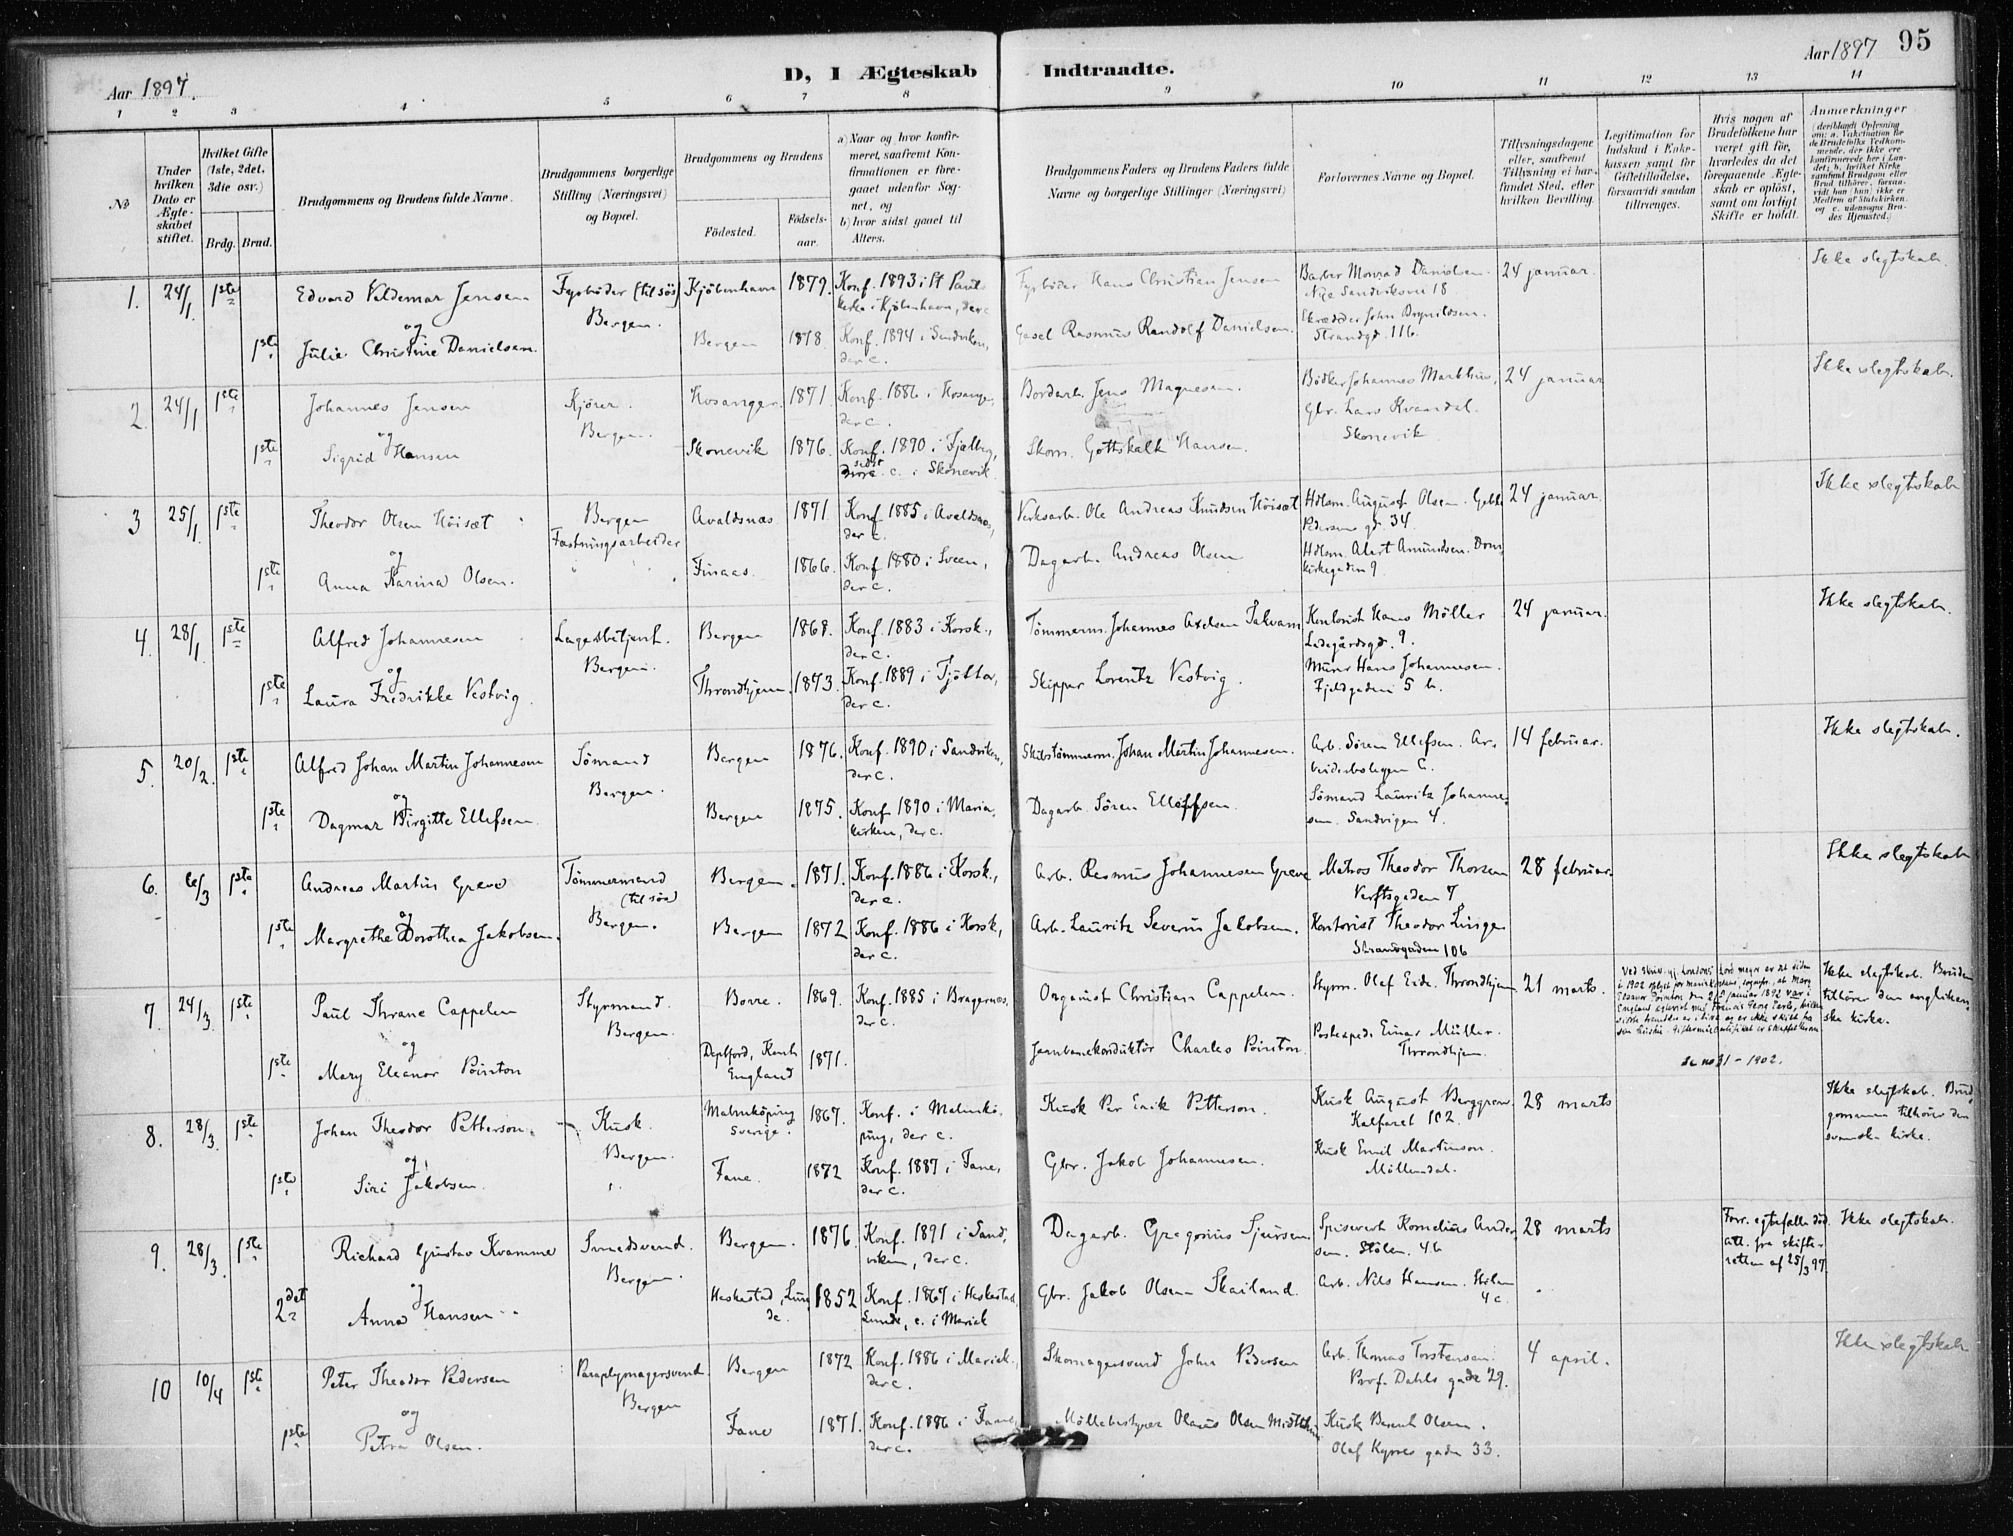 Aar 1897.
D, I Ægteskab Indtraadte.
Aar 1897 95
1 2 3 4 5 6 7 8 9 10 11 12 13 14
№
Under hvilken Dato er Ægteskabet stiftet.
Hvilket Gifte (1ste, 2det, 3die osv.)
Brdg. Brud.
Brudgommens og Brudens fulde Navne.
Brudgommens borgerlige Stilling (Næringsvei) og Bopæl.
Brudgommens og Brudens
Fødested. Fødselsaar.
a) Naar og hvor konfirmeret, saafremt Konfirmationen er foregaaet udenfor Sognet, og
b) hvor sidst gaaet til Alters.
Brudgommens Faders og Brudens Faders fulde Navne og borgerlige Stillinger (Næringsvei)
Forlovernes Navne og Bopæl.
Tillysningsdagene eller, saafremt Tillysning ei har fundet Sted, efter hvilken Bevilling.
Legitimation for Indskud i Enkekassen samt for Giftetilladelse, forsaavidt saadan tiltrænges.
Hvis nogen af Brudefolkene har været gift før, hvorledes da det foregaaende Ægteskab er opløst, samt om lovligt Skifte er holdt.
Anmærkninger
1. 24/1 1ste Edvard Valdemar Jensen Fyrbøder (til søs) Kjøbenhavn 1879. Konf. 1893 i St Pauls Fyrbøder Hans Christian Jensen Barber Monrad Danielsen. 24 januar. Ikke slegtskab.
og Bergen. kirke i Kjøbenhavn, der c. Nye Sandviksvei 18
1ste Julie Christine Danielsen. Bergen 1878. Konf. 1894 i Sandviken, Rasmus Randolf Danielsen. Skrædder John Brynildsen.
der c. Strandgd. 116.
2. 24/1 1ste Johannes Jensen Kjører. Hosanger. 1871. Konf. 1886 i Hosanger, Bordarb. Jens Magnesen. Bødker Johannes Markhus, 24 januar Ikke slegtskab.
og Bergen. der c. Gbr. Lars Kvandal.
1ste Sigrid Hansen Skonevik 1876. Konf. 1890 i Fjelberg, Skom. Gottskalk Hansen. Skonevik
sidst c. i Skonevik.
3 25/1 1ste Theodor Olsen Höisæt Bergen Avaldsnæs 1871 Konf. 1885 i Avaldsnæs, Verksarb. Ole Andreas Knudsen Höisæt Hdlsm. August Olsen. Gebh. 24 januar. Ikke slegtskab
og Fæstningsarbeider der c. Pedersens gd. 34.
1ste Anna Karina Olsen. Finaas. 1866. Konf. 1880 i Sveen, Dagarb. Andreas Olsen Hdlsm. Albert Amundsen. Dom-
der c. kirkegaden 9
4. 28/1 1ste Alfred Johannesen Lagerbetjent. Bergen 1868. Konf. 1883 i Korsk., Tømmerm. Johannes Axelsen Takvam Kontorist Hans Möller 24 januar. Ikke slegtskab.
og Bergen. der c. Ladegårdsgd. 9.
1ste Laura Fredrikke Vestvig. Throndhjem. 1873. Konf. 1889 i Tjøtta, Skipper Lorentz Vestvig. Murer Hans Johannesen.
der c. Fjeldgaden 5 b.
5. 20/2. 1ste Alfred Johan Martin Johannesen Sömand Bergen 1876. Konf. 1890 i Sandviken, Skibstömmerm. Johan Martin Johannesen. Arb. Sören Ellefsen. Ar- 14 februar. Ikke slegtskab.
og Bergen. der c. beiderboligen C.
1ste Dagmar Birgitte Ellefsen. Bergen 1875. Konf. 1890 i Maria- Dagarb. Sören Elleffsen. Sömand Lauritz Johanne-
kirken, der c. sen. Sandvigen 4.
6. 6/3 1ste Andreas Martin Greve Tömmermand Bergen. 1871. Konf. 1886 i Korsk., Arb. Rasmus Johannesen Greve Matros Theodor Thorsen 28 februar. Ikke slegtskab
og (til søs) der c. Verftsgaden 7
1ste Margrethe Dorothea Jakobsen. Bergen. Bergen 1872 Konf. 1886 i Korsk, Arb. Lauritz Severin Jakobsen. Kontorist Theodor Linge
der c. Strandgaden 106
7. 24/3. 1ste Paul Thrane Cappelen Styrmand. Borre. 1869. Konf. 1885 i Bragernæs, Organist Christian Cappelen. Styrm. Olaf Eide. Throndhjem 21 marts. Ikke slegtskab. Bruden
og Bergen. der c. tilhører den anglikan-
ske kirke.
1ste Mary Eleanor Pointon Deptford, Kent 1871. Jernbanekonduktör Charles Pointon. Postexped. Einar Müller. Se no 31 - 1902.
England Throndhjem.
8. 28/3. 1ste Johan Theodor Petterson. Kusk. Malmköping 1867. Konf. i Malmkö- Kusk Per Erik Petterson. Kusk August Berggren 28 marts Ikke slegtskab. Brud-
og Bergen. Sverige. ping, der c. Kalfaret 102. gommen tilhører den
1ste Siri Jakobsen. Fane. 1872 Konf. 1887 i Fane, Gbr. Jakob Johannesen. Kusk Emil Martinson. svenske kirke.
der c. Möllendal.
9. 28/3. 1ste Richard Gustav Kvamme Smedsvend. Bergen. 1876. Konf. 1891 i Sand- Dagarb. Gregorius Sjursen Spisevert Kornelius Ander- 28 marts Forr. egtefælle död Ikke slegtskab.
og Bergen. viken, der c. sen. Stölen. 4b att. fra skifte-
retten af 25/3 97.
2det Anna Hansen Heskestad, Lun- 1852 Konf. 1867 i Heskestad, Gbr. Jakob Olsen Skailand. Arb. Nils Hansen. Stölen
de. Lunde, c. i Mariek 4c.
10 10/4 1ste Peter Theodor Pedersen Paraplymagersvend. Bergen 1872 Konf. 1886 i Mariek., Skomagersvend John Pedersen Arb. Thomas Torstensen. 4 april. Ikke slegtskab
og Bergen der c. Prof. Dahls gade 29.
1ste Petra Olsen. Fane 1871. Konf. 1886 i Fane, Möllebestyrer Olaus Olsen Kusk Bernt Olsen.
der c. Olaf Kyrres gade 33.